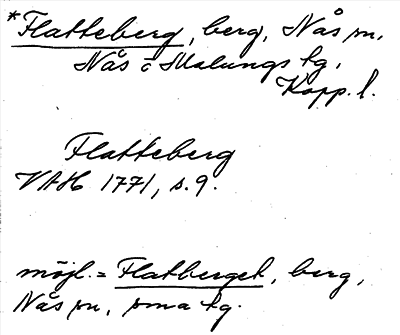 *Flatteberg, berg, Nås sn,
Nås o Malungs tg.
Kopp. l.
Flatteberg
VAH 1771, s. 9.
möjl. = Flatberget, berg,
Nås sn, sma tg.